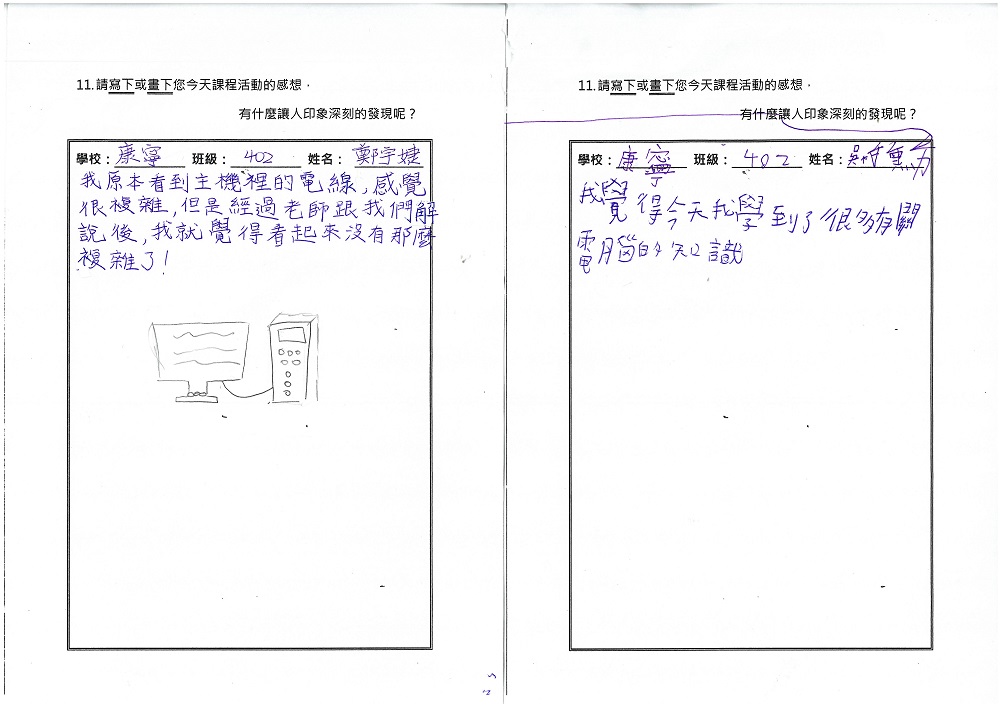 11.請寫下或畫下您今天課程活動的感想，
有什麼讓人印象深刻的發現呢？
學校：康寧 班級：402 姓名：鄭宇婕
我原本看到主機裡的電線,感覺
很複雜,但是經過老師跟我們解
說後,我就覺得看起來沒有那麼
複雜了!
11.請寫下或畫下您今天課程活動的感想，
有什麼讓人印象深刻的發現呢？
學校：康寧 班級：402 姓名：吳
我覺得今天我學到了很多有關
電腦的知識